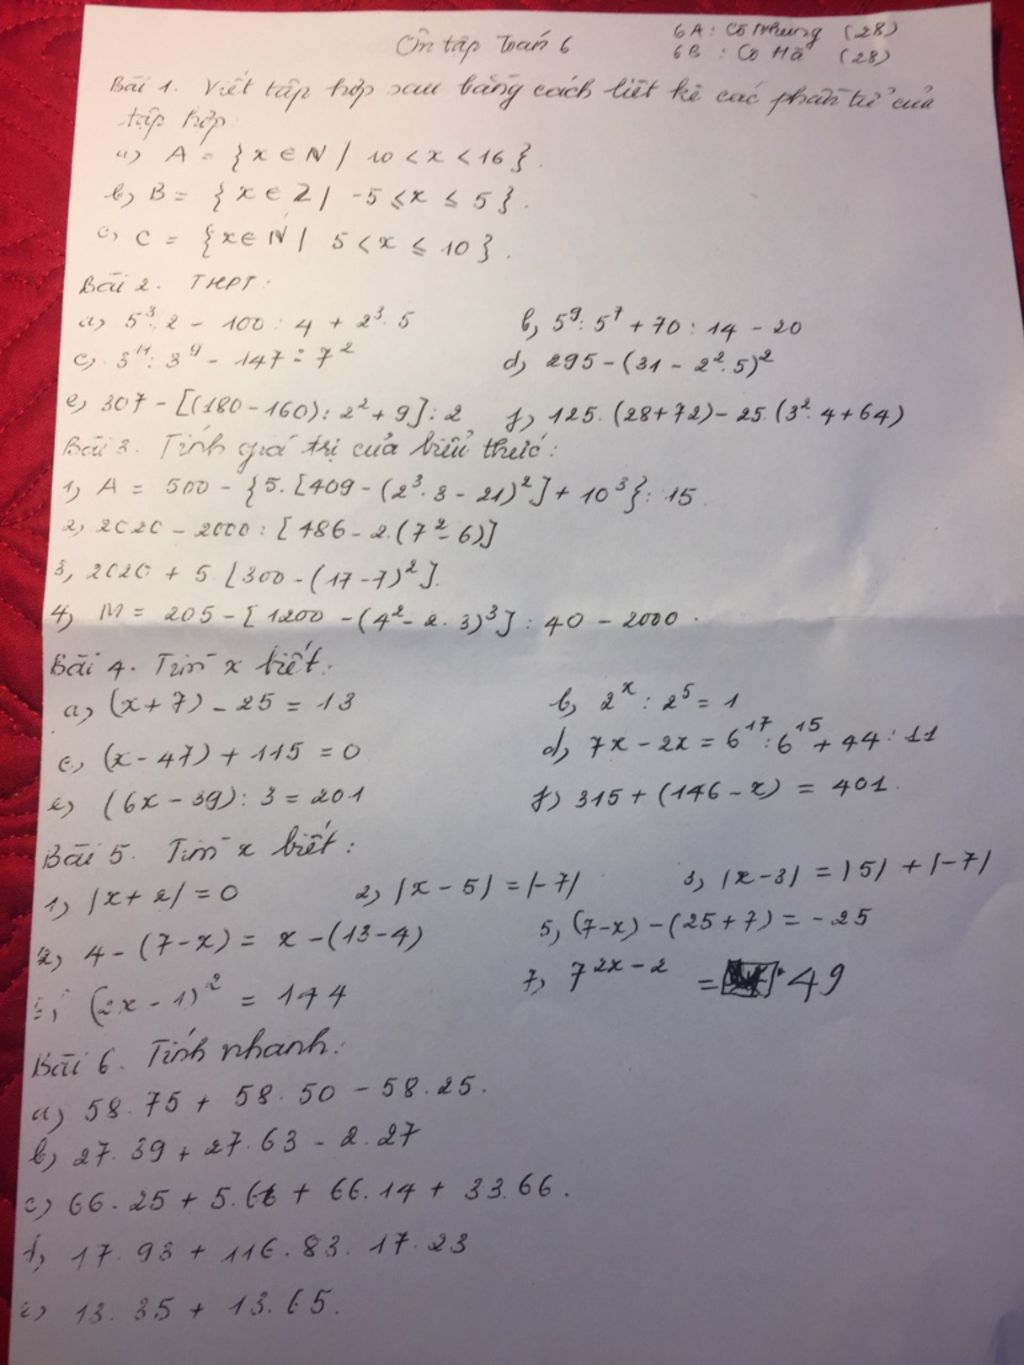 Ôn tập Toán 6
6A : Cô Nhung (28)
6B : Cô Hà (28)
Bài 1. Viết tập hợp sau bằng cách liệt kê các phần tử của
tập hợp:
a) A = {x ∈ N | 10 < x < 16}.
b) B = {x ∈ Z | -5 ≤ x ≤ 5}.
c) C = {x ∈ N | 5 < x ≤ 10}.
Bài 2. THPT:
a) 5³. 2 - 100 : 4 + 2³. 5
b) 5⁹: 5⁷ + 70 : 14 - 20
c) 3¹¹: 3⁹ - 147 : 7²
d) 295 - (31 - 2². 5)²
e) 307 - [(180 - 160) : 2² + 9] : 2
f) 125. (28 + 72) - 25. (3². 4 + 64)
Bài 3. Tính giá trị của biểu thức:
1) A = 500 - {5. [409 - (2³. 3 - 21)²] + 10³} : 15
2) 2020 - 2000 : [486 - 2. (7² - 6)]
3) 2020 + 5 [300 - (17 - 7)²].
4) M = 205 - [1200 - (4² - 2. 3)³] : 40 - 2000.
Bài 4. Tìm x biết:
a) (x + 7) - 25 = 13
b) 2ˣ : 2⁵ = 1
c) (x - 47) + 115 = 0
d) 7x - 2x = 6¹⁷ : 6¹⁵ + 44 : 11
e) (6x - 39) : 3 = 201
f) 315 + (146 - x) = 401.
Bài 5. Tìm x biết:
1) |x + 2| = 0
2) |x - 5| = |-7|
3) |x - 3| = |5| + |-7|
4 - (7 - x) = x - (13 - 4)
5) (7 - x) - (25 + 7) = -25
(2x - 1)² = 144
7) 7²ˣ⁻² = 49
Bài 6. Tính nhanh:
a) 58. 75 + 58. 50 - 58. 25.
b) 27. 39 + 27. 63 - 2. 27
c) 66. 25 + 5. 66 + 66. 14 + 33. 66.
d) 17. 93 + 116. 83. 17. 23
e) 13. 35 + 13. 65.